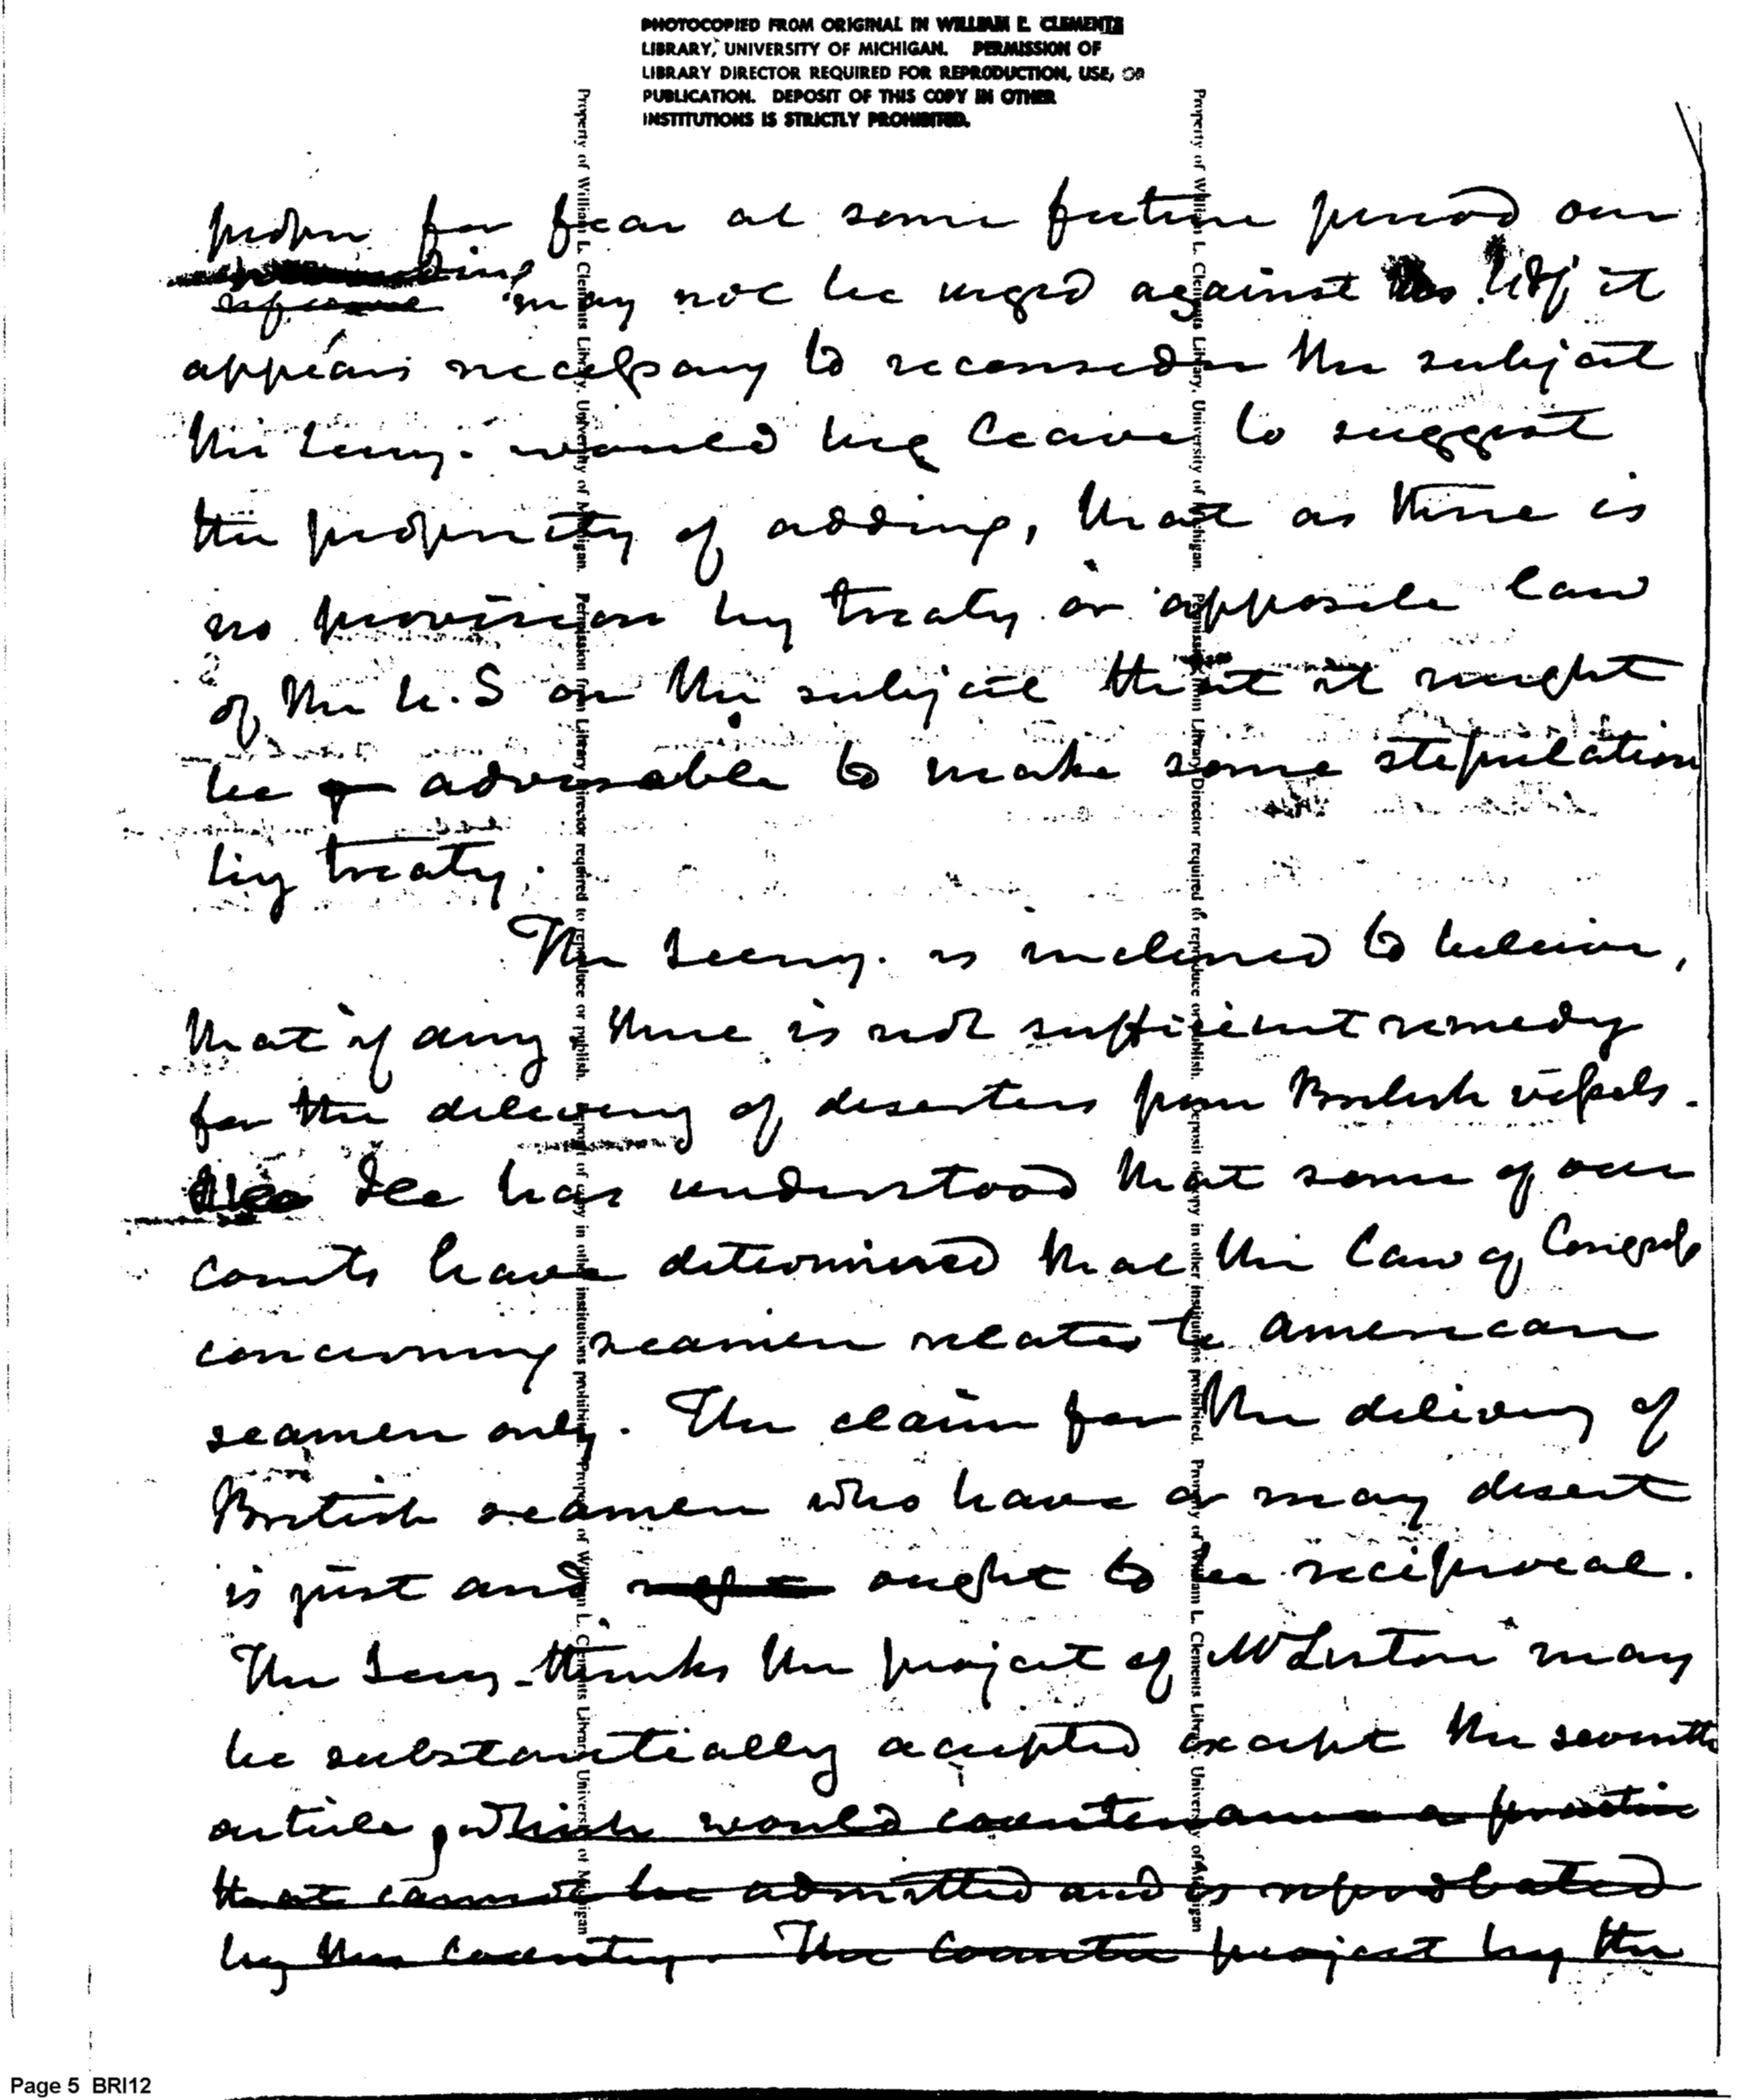 PHOTOCOPIED FROM ORIGINAL IN WILLIAM L. CLEMENTS
LIBRARY, UNIVERSITY OF MICHIGAN. PERMISSION OF
LIBRARY DIRECTOR REQUIRED FOR REPRODUCTION, USE, OR
PUBLICATION. DEPOSIT OF THIS COPY IN OTHER
INSTITUTIONS IS STRICTLY PROHIBITED.
proper for fear at some future period our
may not be urged against us. If it
appears necessary to reconsider the subject
the Secry. would beg leave to suggest
the propriety of adding, that as there is
no provision by treaty or apposite law
of the U.S on the subject that it might
be advisable to make some stipulation
by treaty.
The Secry. is inclined to believe,
that if any there is not sufficient remedy
for the delivery of deserters from British vessels.
He has understood that some of our
courts have determined that the law of Congress
concerning seamen relates to American
seamen only. The claim for the delivery of
British seamen who have or may desert
is just and ought to be reciprocal.
The Secy. thinks the project of Mr Liston may
be substantially accepted except the seventh
article, which would countenance a practice
that cannot be admitted and is reprobated
by this country. The counter project by the
Property of William L. Clements Library, University of Michigan. Permission from Library Director required to reproduce or publish. Deposit of copy in other institutions prohibited. Property of William L. Clements Library, University of Michigan
Property of William L. Clements Library, University of Michigan. Permission from Library Director required to reproduce or publish. Deposit of copy in other institutions prohibited. Property of William L. Clements Library, University of Michigan
Page 5 BRI12